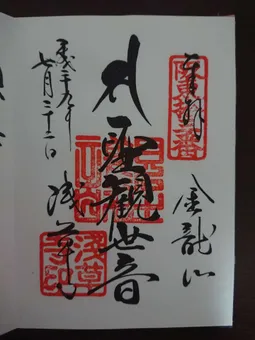 奉拝
坂東拾三番
金龍山
聖観世音
浅草寺
浅草寺印
平成二十九年
七月二十二日